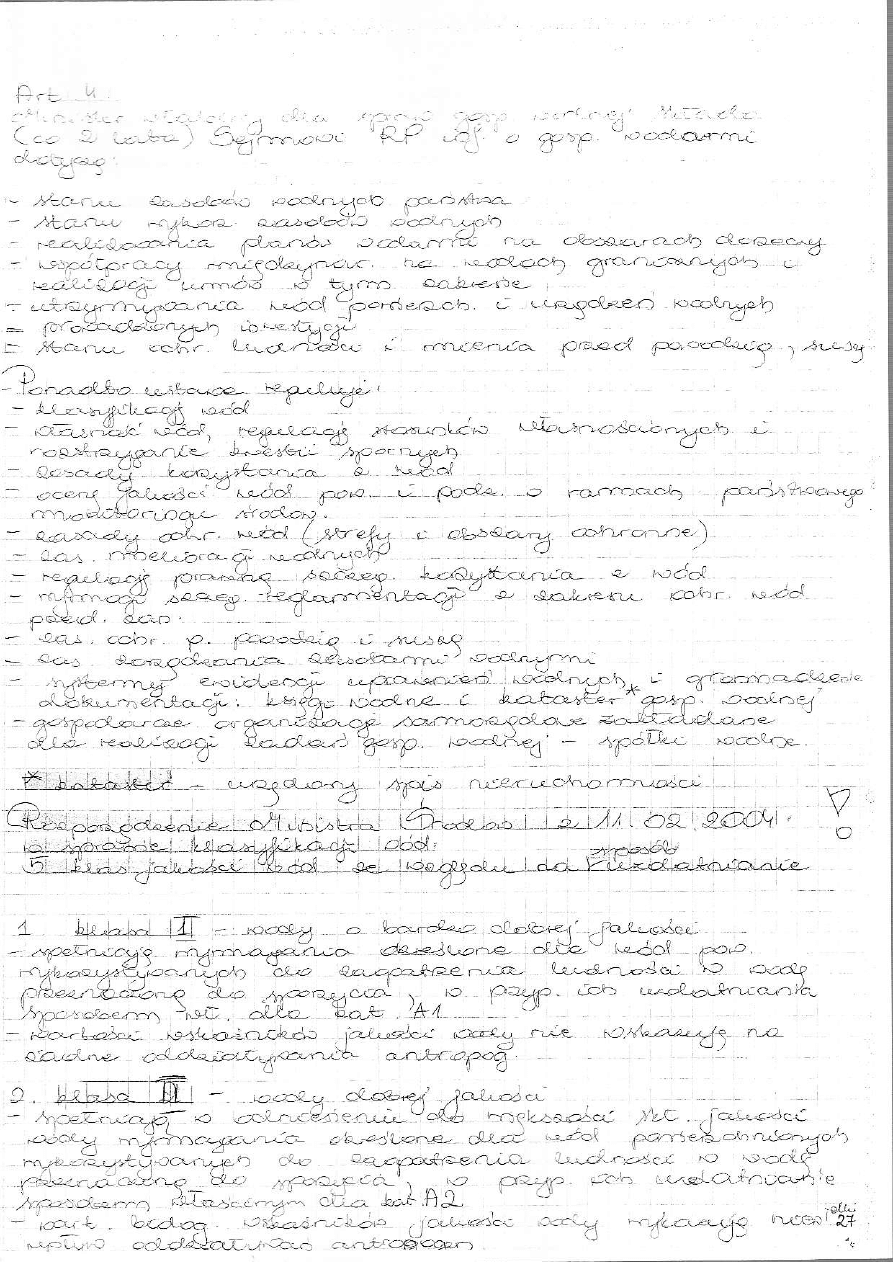 Art. 4.
Minister właściwy dla spraw gosp. wodnej składa
(co 2 lata) Sejmowi RP inf. o gosp. wodami
dotycą:
- stanu zasobów wodnych państwa
- stanu wykorz. zasobów wodnych
- realizowania planów wodami na obszarach dorzeczy
- współpracy międzynar. na wodach granicznych i
realizacji umów w tym zakresie
- utrzymywania wód powierzch. i urządzeń wodnych
- prowadzonych inwestycji
- stanu ochr. ludności i mienia przed powodzią, suszą
Ponadto ustawa reguluje:
- klasyfikację wód
- własność wód, regulację stosunków własnościowych i
rozstrzyganie kwestii spornych
- zasady korzystania z wód
- ocenę jakości wód pow. i podz. w ramach państwowego
monitoringu środow.
- zasady ochr. wód (strefy i obszary ochronne)
- zas. melioracji wodnych
- regulację prawną szczeg. korzystania z wód
- wymogi szczeg. reglamentacji z zakresu ochr. wód
przed. zan.
- zas. ochr. p. powodzią i suszą
- zas zarządzania zasobami wodnymi
- systemy ewidencji uprawnień wodnych i gromadzenie
dokumentacji: księgi wodne i kataster* gosp. wodnej
- gospodarcze organizacje samorządowe zakładane
dla realizacji zadań gosp. wodnej - spółki wodne.
* kataster - urzędowy spis nieruchomości
Rozporządzenie Ministra Środow. z 11 02 2004. !
w sprawie klasyfikacji wód:
5 klas jakości wód ze względu na sposób uzdatnianie
1 klasa I - wody o bardzo dobrej jakości
- spełniają wymagania określone dla wód pow.
wykorzystywanych do zaopatrzenia ludności w wodę
przeznaczoną do spożycia, w przyp. ich uzdatniania
sposobem wł. dla kat. A1
- wartości wskaźników jakości wody nie wskazują na
żadne oddziaływania antropog.
2. klasa II - wody dobrej jakości
- spełniają w odniesieniu do większości wsk. jakości
wody wymagania określone dla wód powierzchniowych
wykorzystywanych do zaopatrzenia ludności w wodę
przeznaczoną do spożycia, w przyp. ich uzdatnianie
sposobem właściwym dla kat. A2
- wart. biolog. wskaźników jakości wody wykazują niewielki
wpływ oddziaływań antropogen.
27